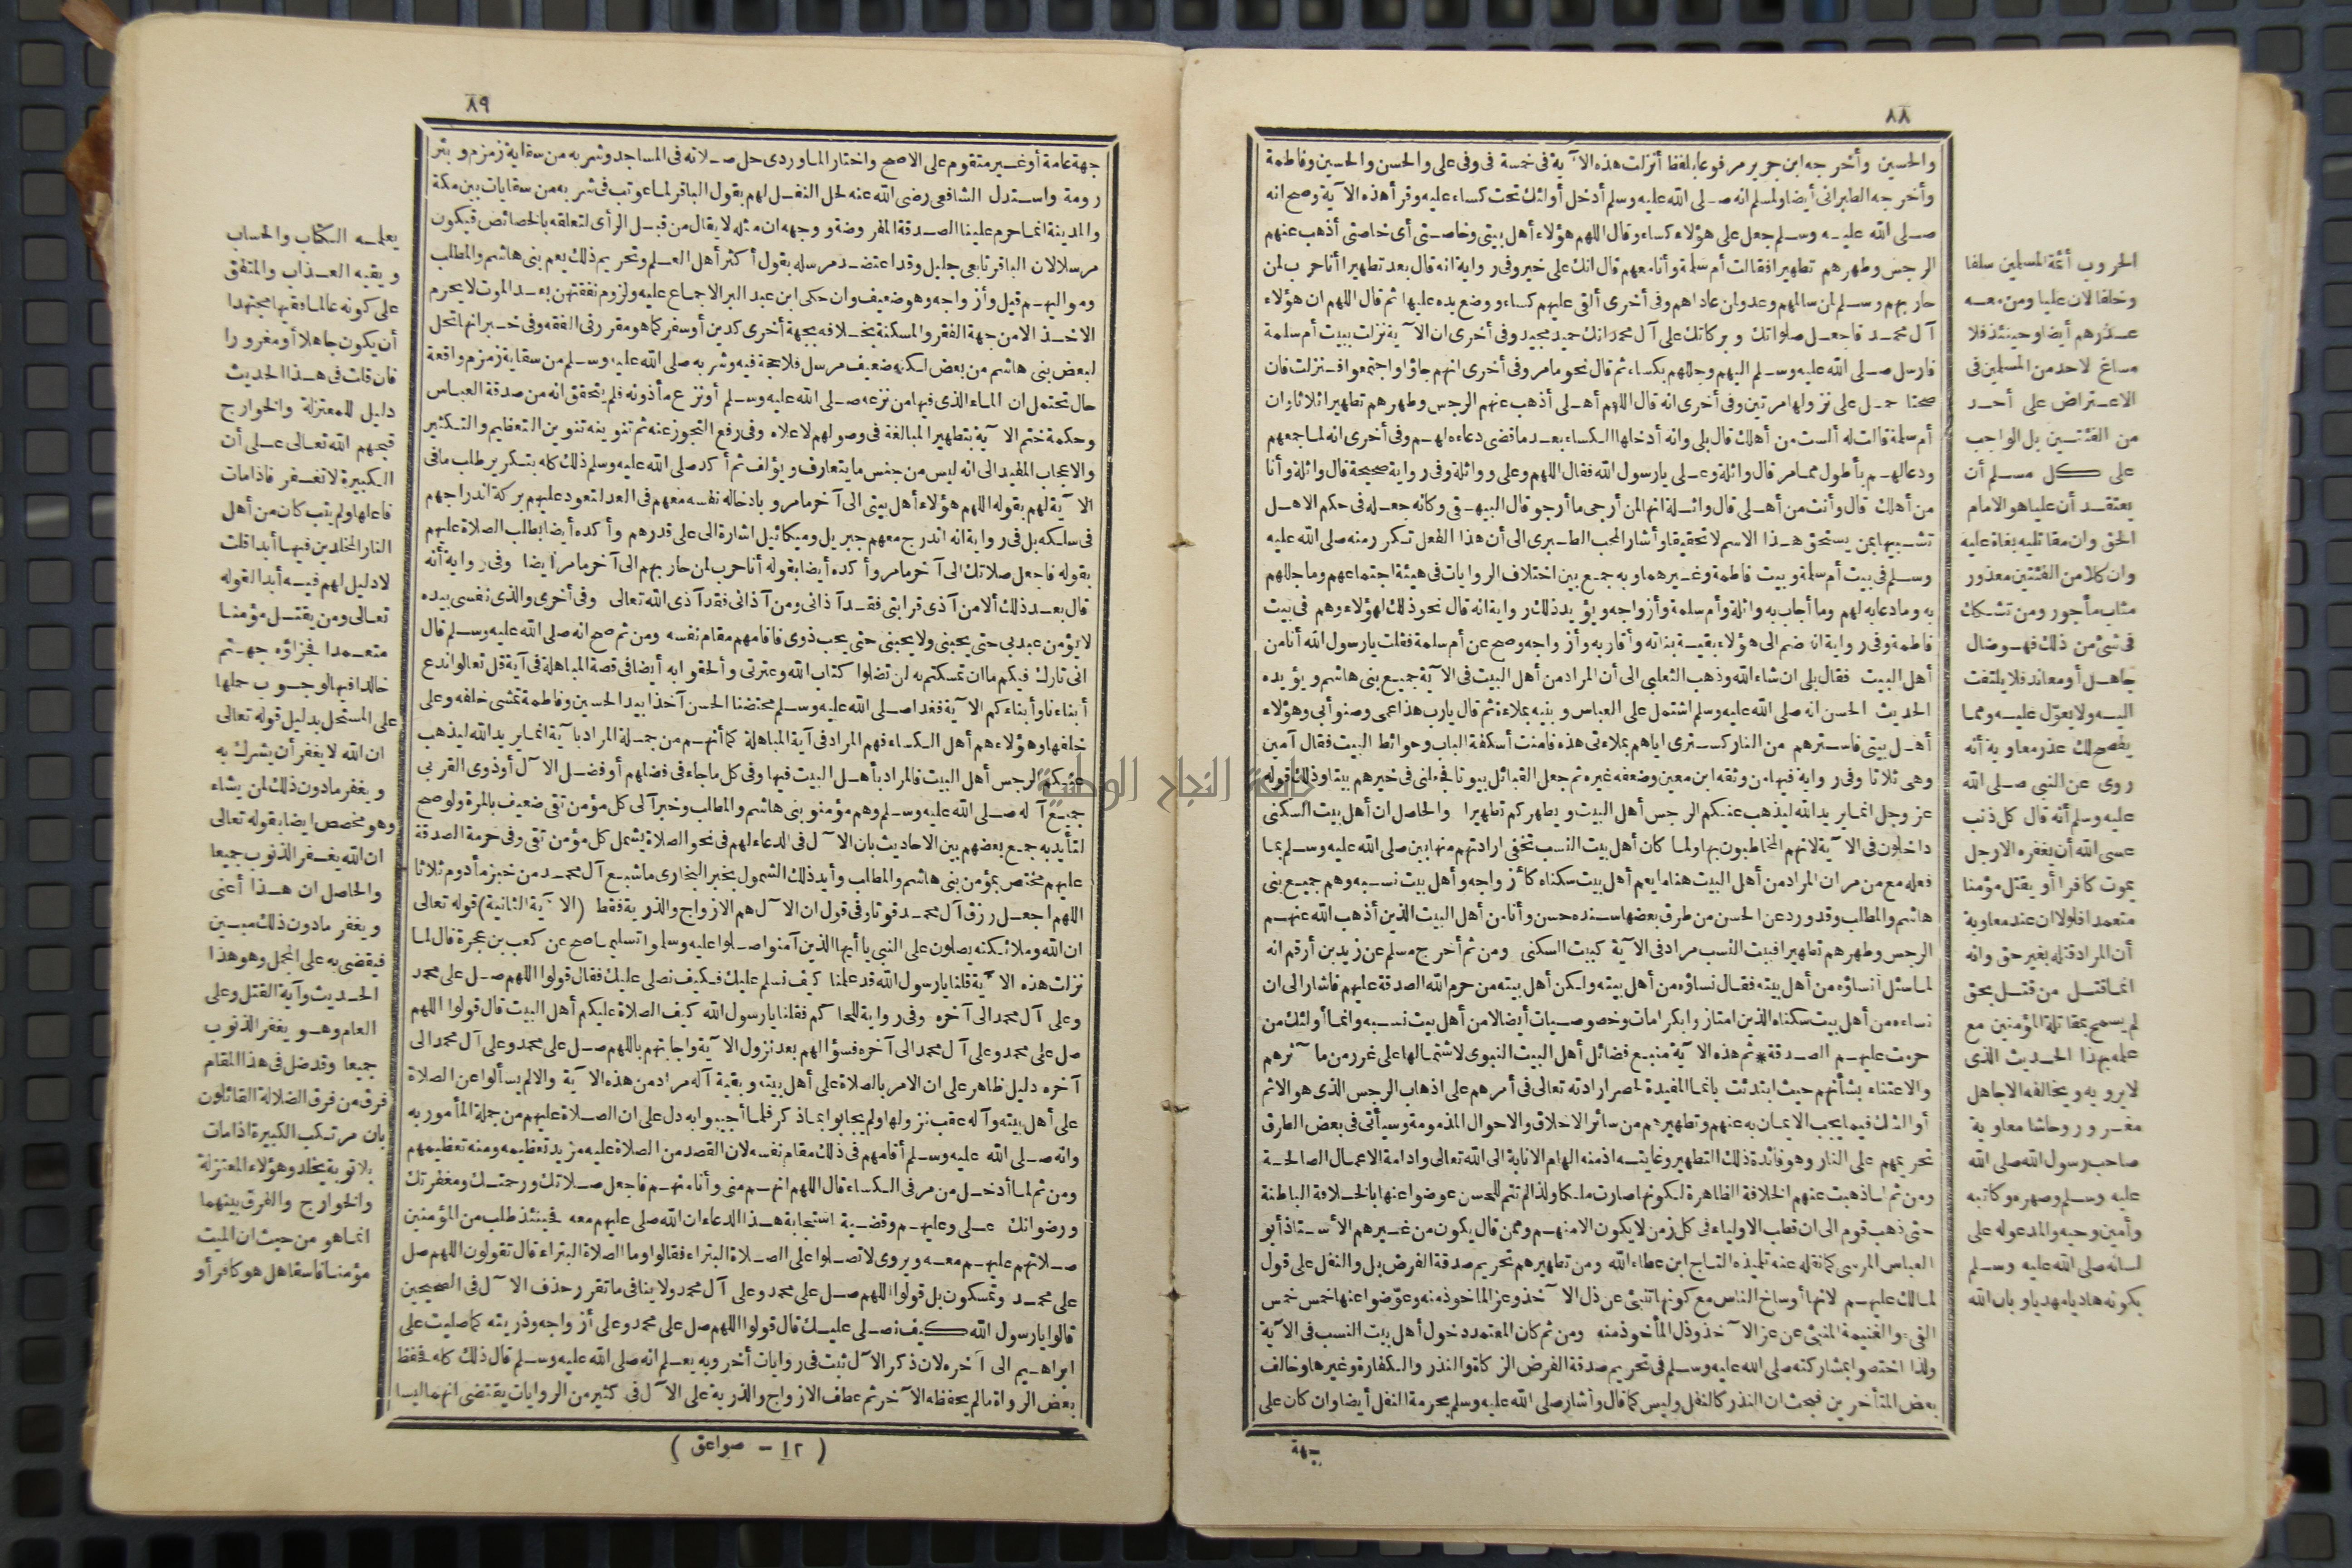 ٨٨
والحسين وأخرجه ابن جرير مرفوعا بلفظ أنزلت هذه الآية فى خمسة فى وفى على والحسن والحسين وفاطمة
وأخرجه الطبرانى أيضا ولمسلم انه صلى الله عليه وسلم أدخل أولئك تحت كساء عليه وقرأ هذه الآية وصح انه
صلى الله عليه وسلم جعل على هؤلاء كساء وقال اللهم هؤلاء أهل بيتى وخاصتى أى خاصتى أذهب عنهم
الرجس وطهرهم تطهيرا فقالت أم سلمة وأنا معهم قال انك على خير وفى رواية انه قال بعد تطهيرا أنا حرب لمن
حاربهم وسلم لمن سالمهم وعدو لمن عاداهم وفى أخرى ألقى عليهم كساء ووضع يده عليها ثم قال اللهم ان هؤلاء
آل محمد فاجعل صلواتك وبركاتك على آل محمد انك حميد مجيد وفى أخرى ان الآية نزلت ببيت أم سلمة
فارسل صلى الله عليه وسلم اليهم وجللهم بكساء ثم قال نحو ما مر وفى أخرى انهم جاؤا واجتمعوا فنزلت فان
صحتا حمل على نزولها مرتين وفى أخرى انه قال اللهم أهلى أذهب عنهم الرجس وطهرهم تطهيرا ثلاثا وان
أم سلمة قالت له ألست من أهلك قال بلى وانه أدخلها الكساء بعد ما قضى دعاءه لهم وفى أخرى انه لما جمعهم
ودعا لهم بأطول مما مر قال واثلة وعلى يارسول الله فقال اللهم وعلى وواثلة وفى رواية صحيحة قال واثلة وأنا
من أهلك قال وأنت من أهلى قال واثلة انها لمن أرجى ما أرجو قال البيهقى وكانه جعله فى حكم الاهل
تشبيها بمن يستحق هذا الاسم لا تحقيقا وأشار المحب الطبرى الى أن هذا الفعل تكرر منه صلى الله عليه
وسلم فى بيت أم سلمة وبيت فاطمة وغيرهما وبه جمع بين اختلاف الروايات فى هيئة اجتماعهم وما جللهم
به وما دعا به لهم وما أجاب به واثلة وأم سلمة وأزواجه ويؤيد ذلك رواية انه قال نحو ذلك لهؤلاء وهم فى بيت
فاطمة وفى رواية انه ضم الى هؤلاء بقية بناته وأقاربه وأزواجه وصح عن أم سلمة فقلت يارسول الله أنا من
أهل البيت فقال بلى ان شاء الله وذهب الثعلبى الى أن المراد من أهل البيت فى الآية جميع بنى هاشم ويؤيده
الحديث الحسن انه صلى الله عليه وسلم اشتمل على العباس وبنيه بملاءة ثم قال يارب هذا عمى وصنو أبى وهؤلاء
أهل بيتى فاسترهم من النار كسترى اياهم بملاءتى هذه فامنت أسكفة الباب وحوائط البيت فقال آمين
وهى ثلاثا وفى رواية فيها من وثقه ابن معين وضعفه غيره ثم جعل القبائل بيوتا فجعلنى فى خيرهم بيتا وذلك قوله
عز وجل انما يريد الله ليذهب عنكم الرجس أهل البيت ويطهركم تطهيرا والحاصل ان أهل بيت السكنى
داخلون فى الآية لانهم المخاطبون بها ولما كان أهل بيت النسب تخفى ارادتهم منها بين صلى الله عليه وسلم بما
فعله مع من مر ان المراد من أهل البيت هنا ما يعم أهل بيت سكناه كأزواجه وأهل بيت نسبه وهم جميع بنى
هاشم والمطلب وقد ورد عن الحسن من طرق بعضها سنده حسن وأنا من أهل البيت الذين أذهب الله عنهم
الرجس وطهرهم تطهيرا فبيت النسب مراد فى الآية كبيت السكنى ومن ثم أخرج مسلم عن زيد بن أرقم انه
لما سئل أنساؤه من أهل بيته فقال نساؤه من أهل بيته ولكن أهل بيته من حرم الله الصدقة عليهم فاشار الى ان
نساءه من أهل بيت سكناه الذين امتازوا بكرامات وخصوصيات أيضا لا من أهل بيت نسبه وانما أولئك من
حرمت عليهم الصدقة * ثم هذه الآية منبع فضائل أهل البيت النبوى لاشتمالها على غرر من مآثرهم
والاعتناء بشأنهم حيث ابتدئت بانما المفيدة لحصر ارادته تعالى فى أمرهم على اذهاب الرجس الذى هو الاثم
أو الشك فيما يجب الايمان به عنهم وتطهيرهم من سائر الاخلاق والاحوال المذمومة وسيأتى فى بعض الطرق
تحريمهم على النار وهو فائدة ذلك التطهير وغايته اذ منه الهام الانابة الى الله تعالى وادامة الاعمال الصالحة
ومن ثم لما ذهبت عنهم الخلافة الظاهرة لكونها صارت ملكا ولذا لم تتم للحسن عوضوا عنها بالخلافة الباطنة
حتى ذهب قوم الى ان قطب الاولياء فى كل زمن لا يكون الا منهم وممن قال يكون من غيرهم الأستاذ أبو
العباس المرسى كما نقله عنه تلميذه التاج ابن عطاء الله ومن تطهيرهم تحريم صدقة الفرض بل والنفل على قول
لمالك عليهم لانها أوساخ الناس مع كونها تنبئ عن ذل الآخذ وعز المأخوذ منه وعوّضوا عنها خمس خمس
الفىء والغنيمة المنبئ عن عز الآخذ وذل المأخوذ منه ومن ثم كان المعتمد دخول أهل بيت النسب فى الآية
ولذا اختصوا بمشاركته صلى الله عليه وسلم فى تحريم صدقة الفرض الزكاة والنذر والكفارة وغيرها وخالف
بعض المتأخرين فبحث ان النذر كالنفل وليس كما قال وأشار صلى الله عليه وسلم بحرمة النفل أيضا وان كان على
جهة
الحروب أئمة المسلمين سلفا
وخلفا لان عليا ومن معه
عذرهم أيضا وحينئذ فلا
مساغ لاحد من المسلمين فى
الاعتراض على أحد
من الفئتين بل الواجب
على كل مسلم أن
يعتقد أن عليا هو الامام
الحق وان مقاتليه بغاة عليه
وان كلا من الفئتين معذور
مثاب مأجور ومن تشكك
فى شئ من ذلك فهو ضال
جاهل أو معاند فلا يلتفت
اليه ولا يعوّل عليه ومما
يفصح لك عذر معاوية أنه
روى عن النبى صلى الله
عليه وسلم أنه قال كل ذنب
عسى الله أن يغفره الا رجل
يموت كافرا أو يقتل مؤمنا
متعمدا فلولا ان عند معاوية
أن المراد قتله بغير حق وانه
انما قتل من قتل بحق
لم يسمح بمقاتلة المؤمنين مع
علمه بهذا الحديث الذى
لا يرويه ويخالفه الا جاهل
مغرور وحاشا معاوية
صاحب رسول الله صلى الله
عليه وسلم وصهره وكاتبه
وأمين وحيه والمدعو له على
لسانه صلى الله عليه وسلم
بكونه هاديا مهديا وبان الله
٨٩
جهة عامة أو غير متقوم على الاصح واختار الماوردى حل صلاته فى المساجد وشربه من سقاية زمزم وبئر
رومة واستدل الشافعى رضى الله عنه لحل النفل لهم بقول الباقر لما عوتب فى شربه من سقايات بين مكة
والمدينة انما حرم علينا الصدقة المفروضة ووجهه ان مثله لا يقال من قبل الرأى لتعلقه بالخصائص فيكون
مرسلا لان الباقر تابعى جليل وقد اعتضد مرسله بقول أكثر أهل العلم وتحريم ذلك يعم بنى هاشم والمطلب
ومواليهم قيل وأزواجه وهو ضعيف وان حكى ابن عبد البر الاجماع عليه ولزوم نفقتهن بعد الموت لا يحرم
الاخذ الا من جهة الفقر والمسكنة بخلافه بجهة أخرى كدين أو سفر كما هو مقرر فى الفقه وفى خبر انها تحل
لبعض بنى هاشم من بعض لكنه ضعيف مرسل فلا حجة فيه وشربه صلى الله عليه وسلم من سقاية زمزم واقعة
حال تحتمل ان الماء الذى فيها من نزعه صلى الله عليه وسلم أو نزع مأذونه فلم يتحقق انه من صدقة العباس
وحكمة ختم الآية بتطهيرا المبالغة فى وصولهم لاعلاه وفى رفع التجوز عنه ثم تنوينه تنوين التعظيم والتكثير
والاعجاب المفيد الى انه ليس من جنس ما يتعارف ويؤلف ثم أكد صلى الله عليه وسلم ذلك كله بتكرير طلب ما فى
الآية لهم بقوله اللهم هؤلاء أهل بيتى الى آخر ما مر وبادخاله نفسه معهم فى العد لتعود عليهم بركة اندراجهم
فى سلكه بل فى رواية انه اندرج معهم جبريل وميكائيل اشارة الى على قدرهم وأكده أيضا بطلب الصلاة عليهم
بقوله فاجعل صلاتك الى آخر ما مر وأكده أيضا بقوله أنا حرب لمن حاربهم الى آخر ما مر أيضا وفى رواية أنه
قال بعد ذلك ألا من آذى قرابتى فقد آذانى ومن آذانى فقد آذى الله تعالى وفى أخرى والذى نفسى بيده
لا يؤمن عبد بى حتى يحبنى ولا يحبنى حتى يحب ذوى فاقامهم مقام نفسه ومن ثم صح انه صلى الله عليه وسلم قال
انى تارك فيكم ما ان تمسكتم به لن تضلوا كتاب الله وعترتى وألحقوا به أيضا فى قصة المباهلة فى آية قل تعالوا ندع
أبناءنا وأبناءكم الآية فغدا صلى الله عليه وسلم محتضنا الحسن آخذا بيد الحسين وفاطمة تمشى خلفه وعلى
خلفها وهؤلاء هم أهل الكساء فهم المراد فى آية المباهلة كما أنهم من جملة المراد بآية انما يريد الله ليذهب
عنكم الرجس أهل البيت فالمراد بأهل البيت فيها وفى كل ما جاء فى فضلهم أو فضل الآل أو ذوى القربى
جميع آله صلى الله عليه وسلم وهم مؤمنو بنى هاشم والمطلب وخبر آلى كل مؤمن تقى ضعيف بالمرة ولو صح
لتأيد به جمع بعضهم بين الاحاديث بان الآل فى الدعاء لهم فى نحو الصلاة يشمل كل مؤمن تقى وفى حرمة الصدقة
عليهم مختص بمؤمن بنى هاشم والمطلب وأيد ذلك الشمول بخبر البخارى ما شبع آل محمد من خبز مأدوم ثلاثا
اللهم اجعل رزق آل محمد قوتا وفى قول ان الآل هم الازواج والذرية فقط (الآية الثانية) قوله تعالى
ان الله وملائكته يصلون على النبى يا أيها الذين آمنوا صلوا عليه وسلموا تسليما صح عن كعب بن عجرة قال لما
نزلت هذه الآية قلنا يارسول الله قد علمنا كيف نسلم عليك فكيف نصلى عليك فقال قولوا اللهم صل على محمد
وعلى آل محمد الى آخره وفى رواية للحاكم فقلنا يارسول الله كيف الصلاة عليكم أهل البيت قال قولوا اللهم
صل على محمد وعلى آل محمد الى آخره فسؤالهم بعد نزول الآية واجابتهم باللهم صل على محمد وعلى آل محمد الى
آخره دليل ظاهر على ان الامر بالصلاة على أهل بيته وبقية آله مراد من هذه الآية والا لم يسألوا عن الصلاة
على أهل بيته وآله عقب نزولها ولم يجابوا بما ذكر فلما أجيبوا به دل على ان الصلاة عليهم من جملة المأمور به
وانه صلى الله عليه وسلم أقامهم فى ذلك مقام نفسه لان القصد من الصلاة عليه مزيد تعظيمه ومنه تعظيمهم
ومن ثم لما أدخل من مر فى الكساء قال اللهم انهم منى وأنا منهم فاجعل صلاتك ورحمتك ومغفرتك
ورضوانك على وعليهم وقضية استجابة هذا الدعاء ان الله صلى عليهم معه فحينئذ طلب من المؤمنين
صلاتهم عليهم معه ويروى لا تصلوا على الصلاة البتراء فقالوا وما الصلاة البتراء قال تقولون اللهم صل
على محمد وتمسكون بل قولوا اللهم صل على محمد وعلى آل محمد ولا ينافى ما تقرر حذف الآل فى الصحيحين
قالوا يارسول الله كيف نصلى عليك قال قولوا اللهم صل على محمد وعلى أزواجه وذريته كما صليت على
ابراهيم الى آخره لان ذكر الآل ثبت فى روايات أخر وبه يعلم انه صلى الله عليه وسلم قال ذلك كله فحفظ
بعض الرواة ما لم يحفظه الآخر ثم عطف الازواج والذرية على الآل فى كثير من الروايات يقتضى انهما ليسا
(١٢ - صواعق)
يعلمه الكتاب والحساب
ويقيه العذاب والمتفق
على كونه عالما فقيها مجتهدا
أن يكون جاهلا أو مغرورا
فان قلت فى هذا الحديث
دليل للمعتزلة والخوارج
قبحهم الله تعالى على أن
الكبيرة لا تغفر فاذا مات
فاعلها ولم يتب كان من أهل
النار المخلدين فيها أبدا قلت
لا دليل لهم فيه أبدا لقوله
تعالى ومن يقتل مؤمنا
متعمدا فجزاؤه جهنم
خالدا فيها لوجوب حملها
على المستحل بدليل قوله تعالى
ان الله لا يغفر أن يشرك به
ويغفر ما دون ذلك لمن يشاء
وهو مخصص ايضا بقوله تعالى
ان الله يغفر الذنوب جميعا
والحاصل ان هذا أعنى
ويغفر ما دون ذلك مبين
فيقضى به على المجمل وهو هذا
الحديث وآية القتل وعلى
العام وهو يغفر الذنوب
جميعا وقد ضل فى هذا المقام
فرق من فرق الضلالة القائلون
بان مرتكب الكبيرة اذا مات
بلا توبة يخلد وهؤلاء المعتزلة
والخوارج والفرق بينهما
انما هو من حيث ان الميت
مؤمنا فاسقا هل هو كافر أو
النجاح الوطنية